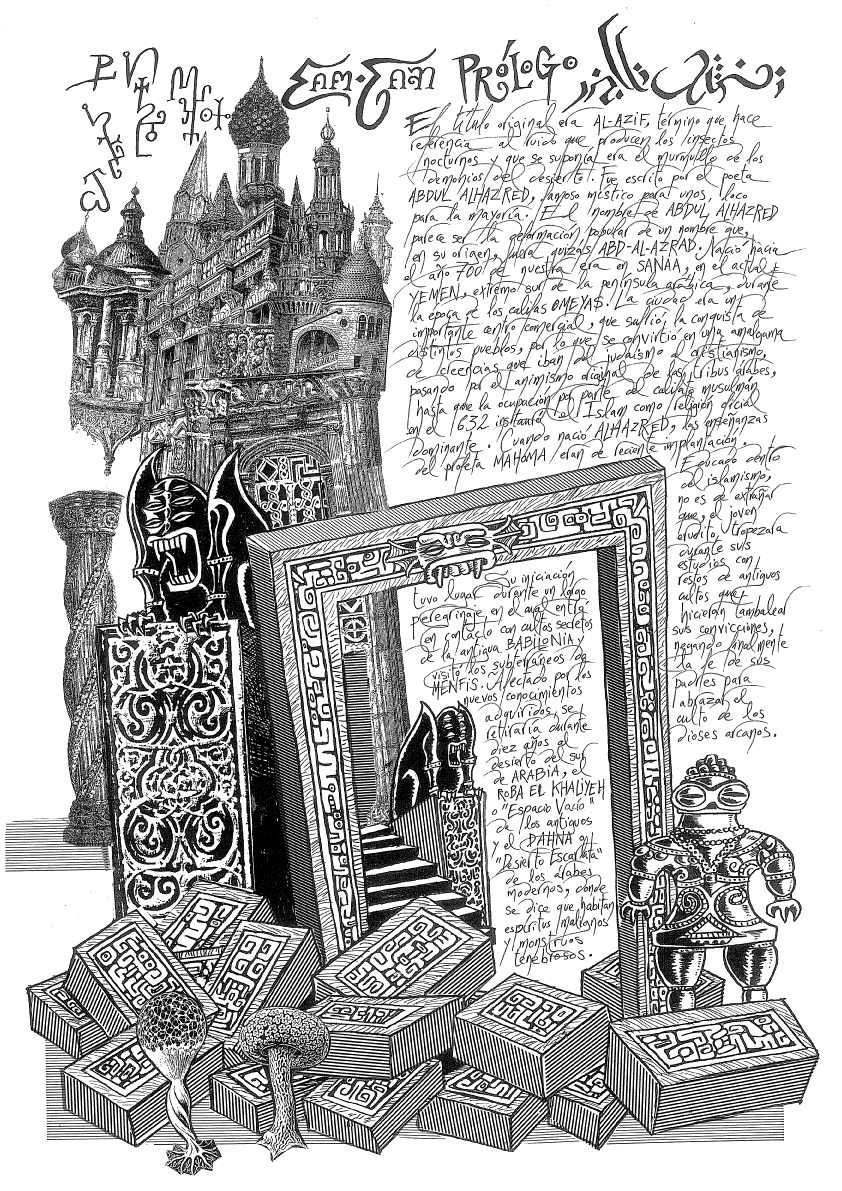 PRÓLOGO
El título original era AL-AZIF, término que hace
referencia al ruido que producen los insectos
nocturnos y que se suponía era el murmullo de los
demonios del desierto. Fue escrito por el poeta
ABDUL ALHAZRED, famoso místico para unos, loco
para la mayoría. El nombre de ABDUL ALHAZRED
parece ser la deformación popular de un nombre que,
en su origen, fuera quizás ABD-AL-AZRAD. Nació hacia
el año 700 de nuestra era en SANAA, en el actual
YEMEN, extremo sur de la península arábica, durante
la época de los califas OMEYAS. La ciudad era un
importante centro comercial, que sufrió la conquista de
distintos pueblos, por lo que se convirtió en una amalgama
de creencias que iban del judaísmo al cristianismo,
pasando por el animismo original de las tribus árabes,
hasta que la ocupación por parte del califato musulmán
en el 632 instauró el Islam como religión oficial
dominante. Cuando nació ALHAZRED, las enseñanzas
del profeta MAHOMA eran de reciente implantación.
Educado dentro
del islamismo,
no es de extrañar
que, el joven
erudito, tropezara
durante sus
estudios con
restos de antiguos
cultos que
hicieran tambalear
sus convicciones,
negando finalmente
la fe de sus
padres para
abrazar el
culto de los
dioses arcanos.
Su iniciación
tuvo lugar durante un largo
peregrinaje en el cual entra
en contacto con cultos secretos
de la antigua BABILONIA y
visitó los subterráneos de
MENFIS. Afectado por los
nuevos conocimientos
adquiridos, se
retiraría durante
diez años al
desierto del sur
de ARABIA, el
ROBA EL KHALIYEH
o "Espacio Vacío"
de los antiguos
y el DAHNA o
"Desierto Escarlata"
de los árabes
modernos, donde
se dice que habitan
espíritus malignos
y monstruos
tenebrosos.